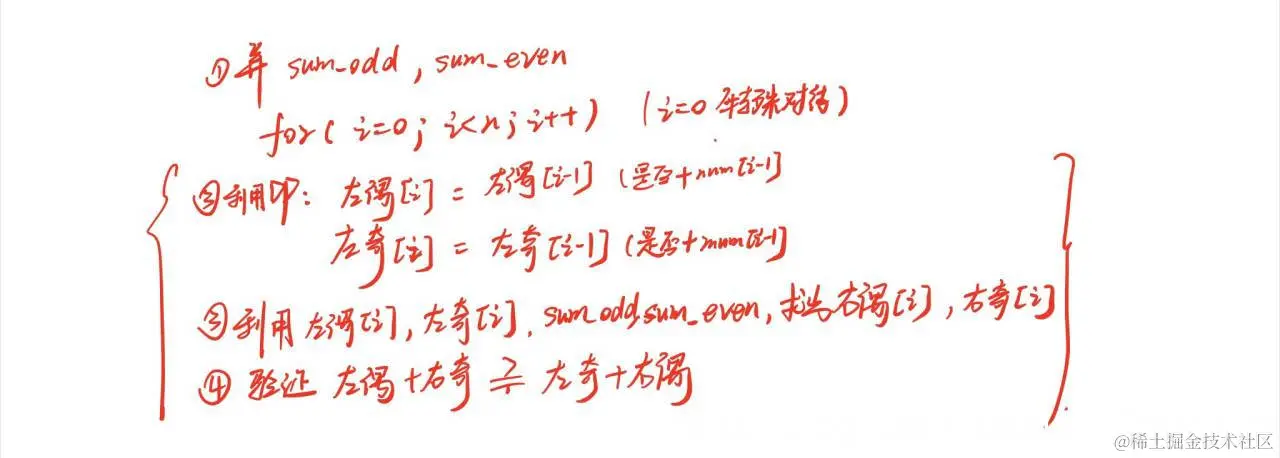 ① 求 sum_odd, sum_even
for( i=0; i<n; i++) (i=0 特殊对待)
② 利用DP: 左偶[i] = 左偶[i-1] (是否+num[i-1]
左奇[i] = 左奇[i-1] (是否+num[i-1]
③ 利用左偶[i], 左奇[i], sum_odd, sum_even, 求出右偶[i], 右奇[i]
④ 验证 左偶+右奇 ≟ 左奇+右偶
@稀土掘金技术社区